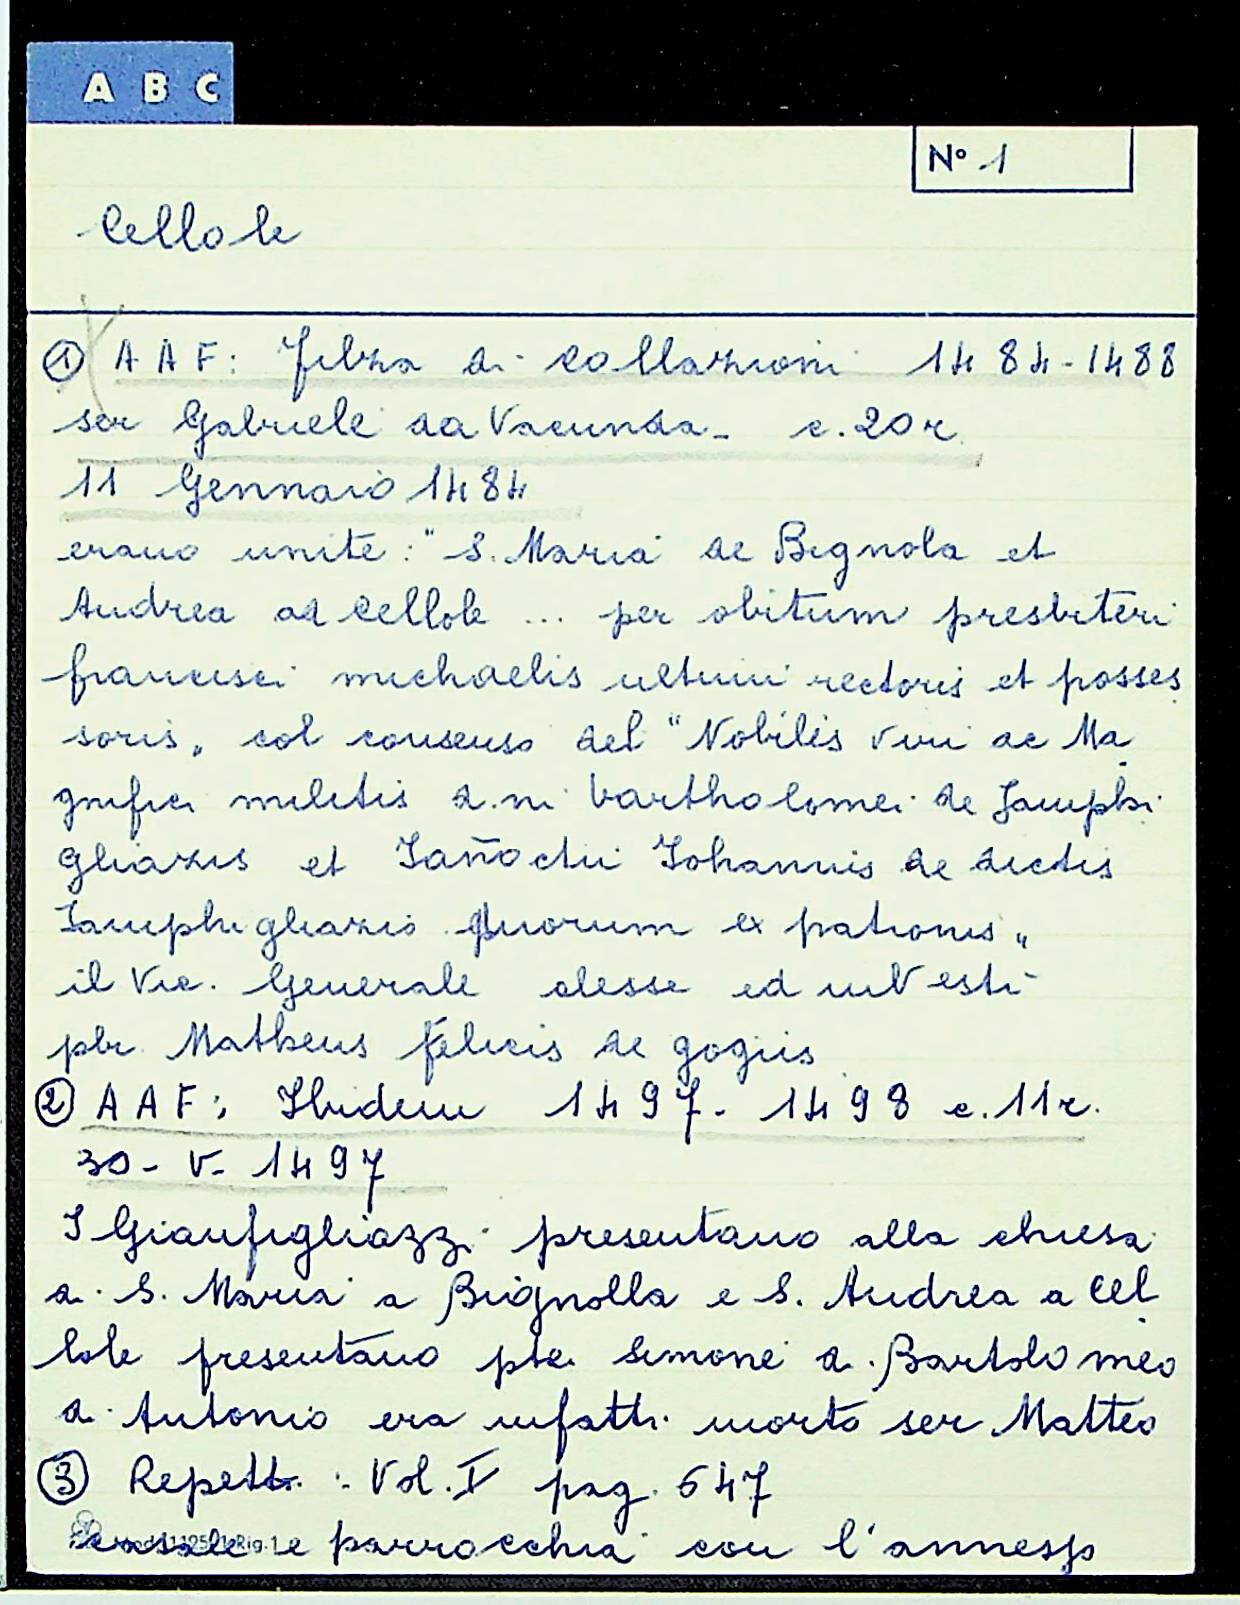 A B C
N° 1
Cellole
① A A F: Filza di collazioni 1484-1488
ser Gabriele da Vacunda - c. 20 r.
11 Gennaio 1484
erano unite: "S. Maria de Bignola et
Andrea ad Cellole ... per obitum presbiteri
francisci michaelis ultimi rectoris et posses
soris„ col consenso del "Nobilis viri ac Ma
gnifici militis d.ni bartholomei de Jamphi
gliazis et Iañoctii Iohannis de dictis
Iamphigliazis quorum ex patronis„
il Vic. Generale elesse ed investì
pbr. Matheus felicis de gogiis
② A A F: Ibidem 1497-1498 c. 11 r.
30-V-1497
I Gianfigliazzi presentano alla chiesa
di S. Maria a Bignolla e S. Andrea a Cel
lole presentano pte. Simone di Bartolomeo
di Antonio era infatti morto ser Matteo
③ Repetti: Vol. I pag. 647
casale e parrocchia con l'annesso